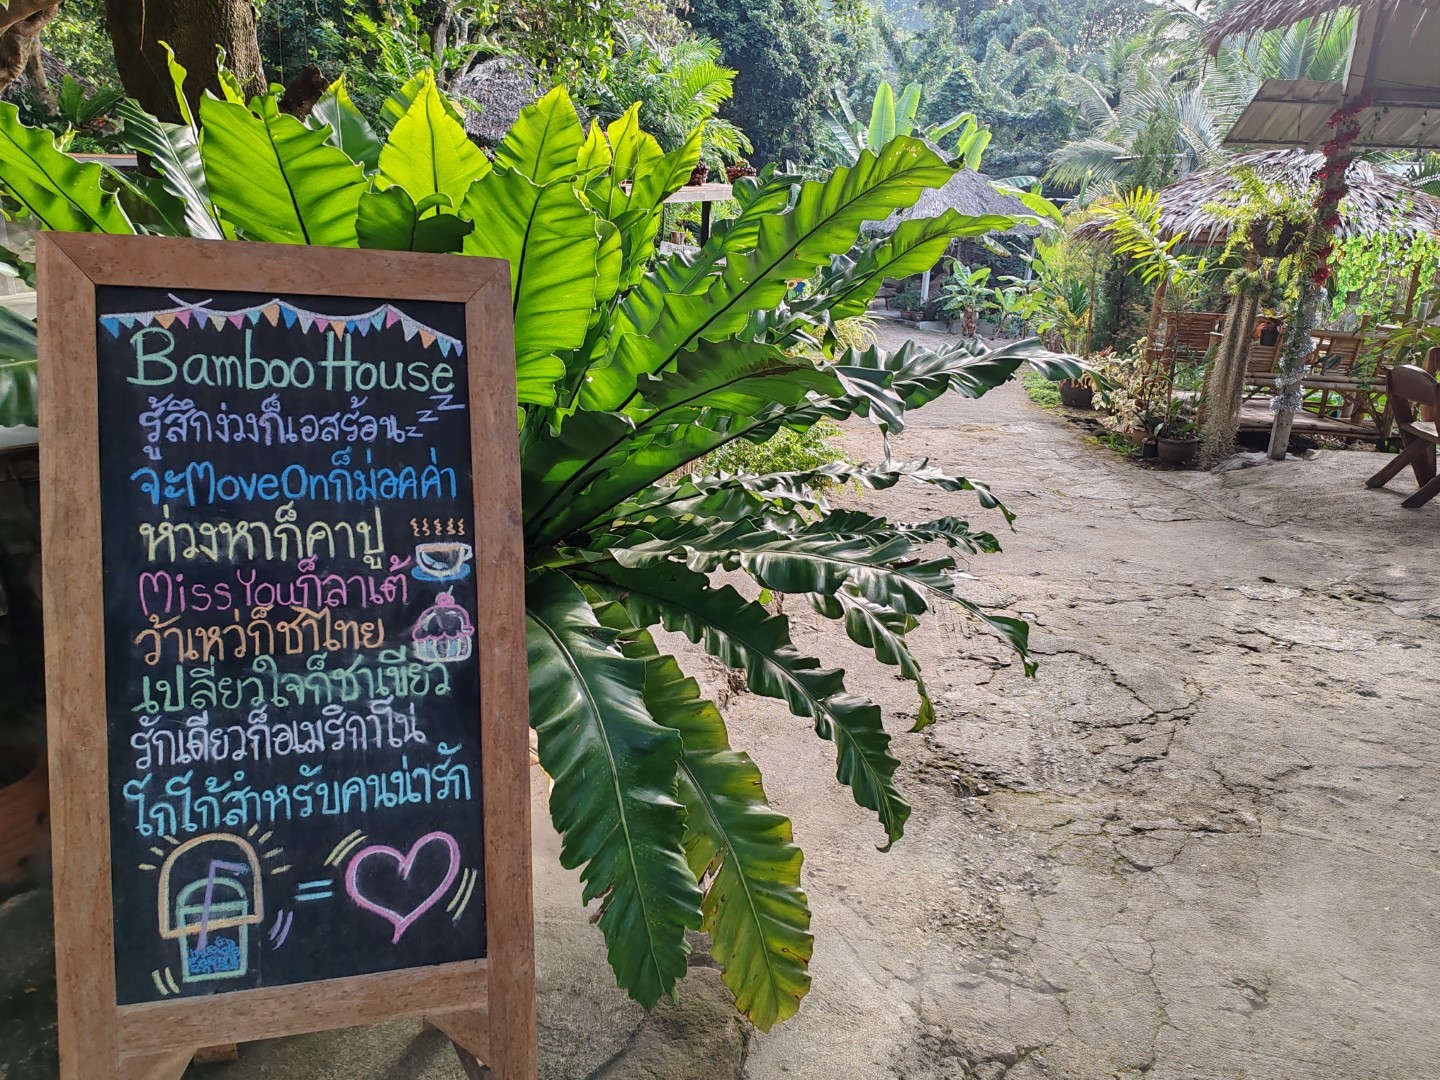 Bamboo House
รู้สึกง่วงก็เอสร้อนzzz
จะMoveOnก็ม่อคค่า
ห่วงหาก็คาปู
MissYouก็ลาเต้
ว้าเหว่ก็ชาไทย
เปลี่ยวใจก็ชาเขียว
รักเดียวก็อเมริกาโน่
โกโก้สำหรับคนน่ารัก
=